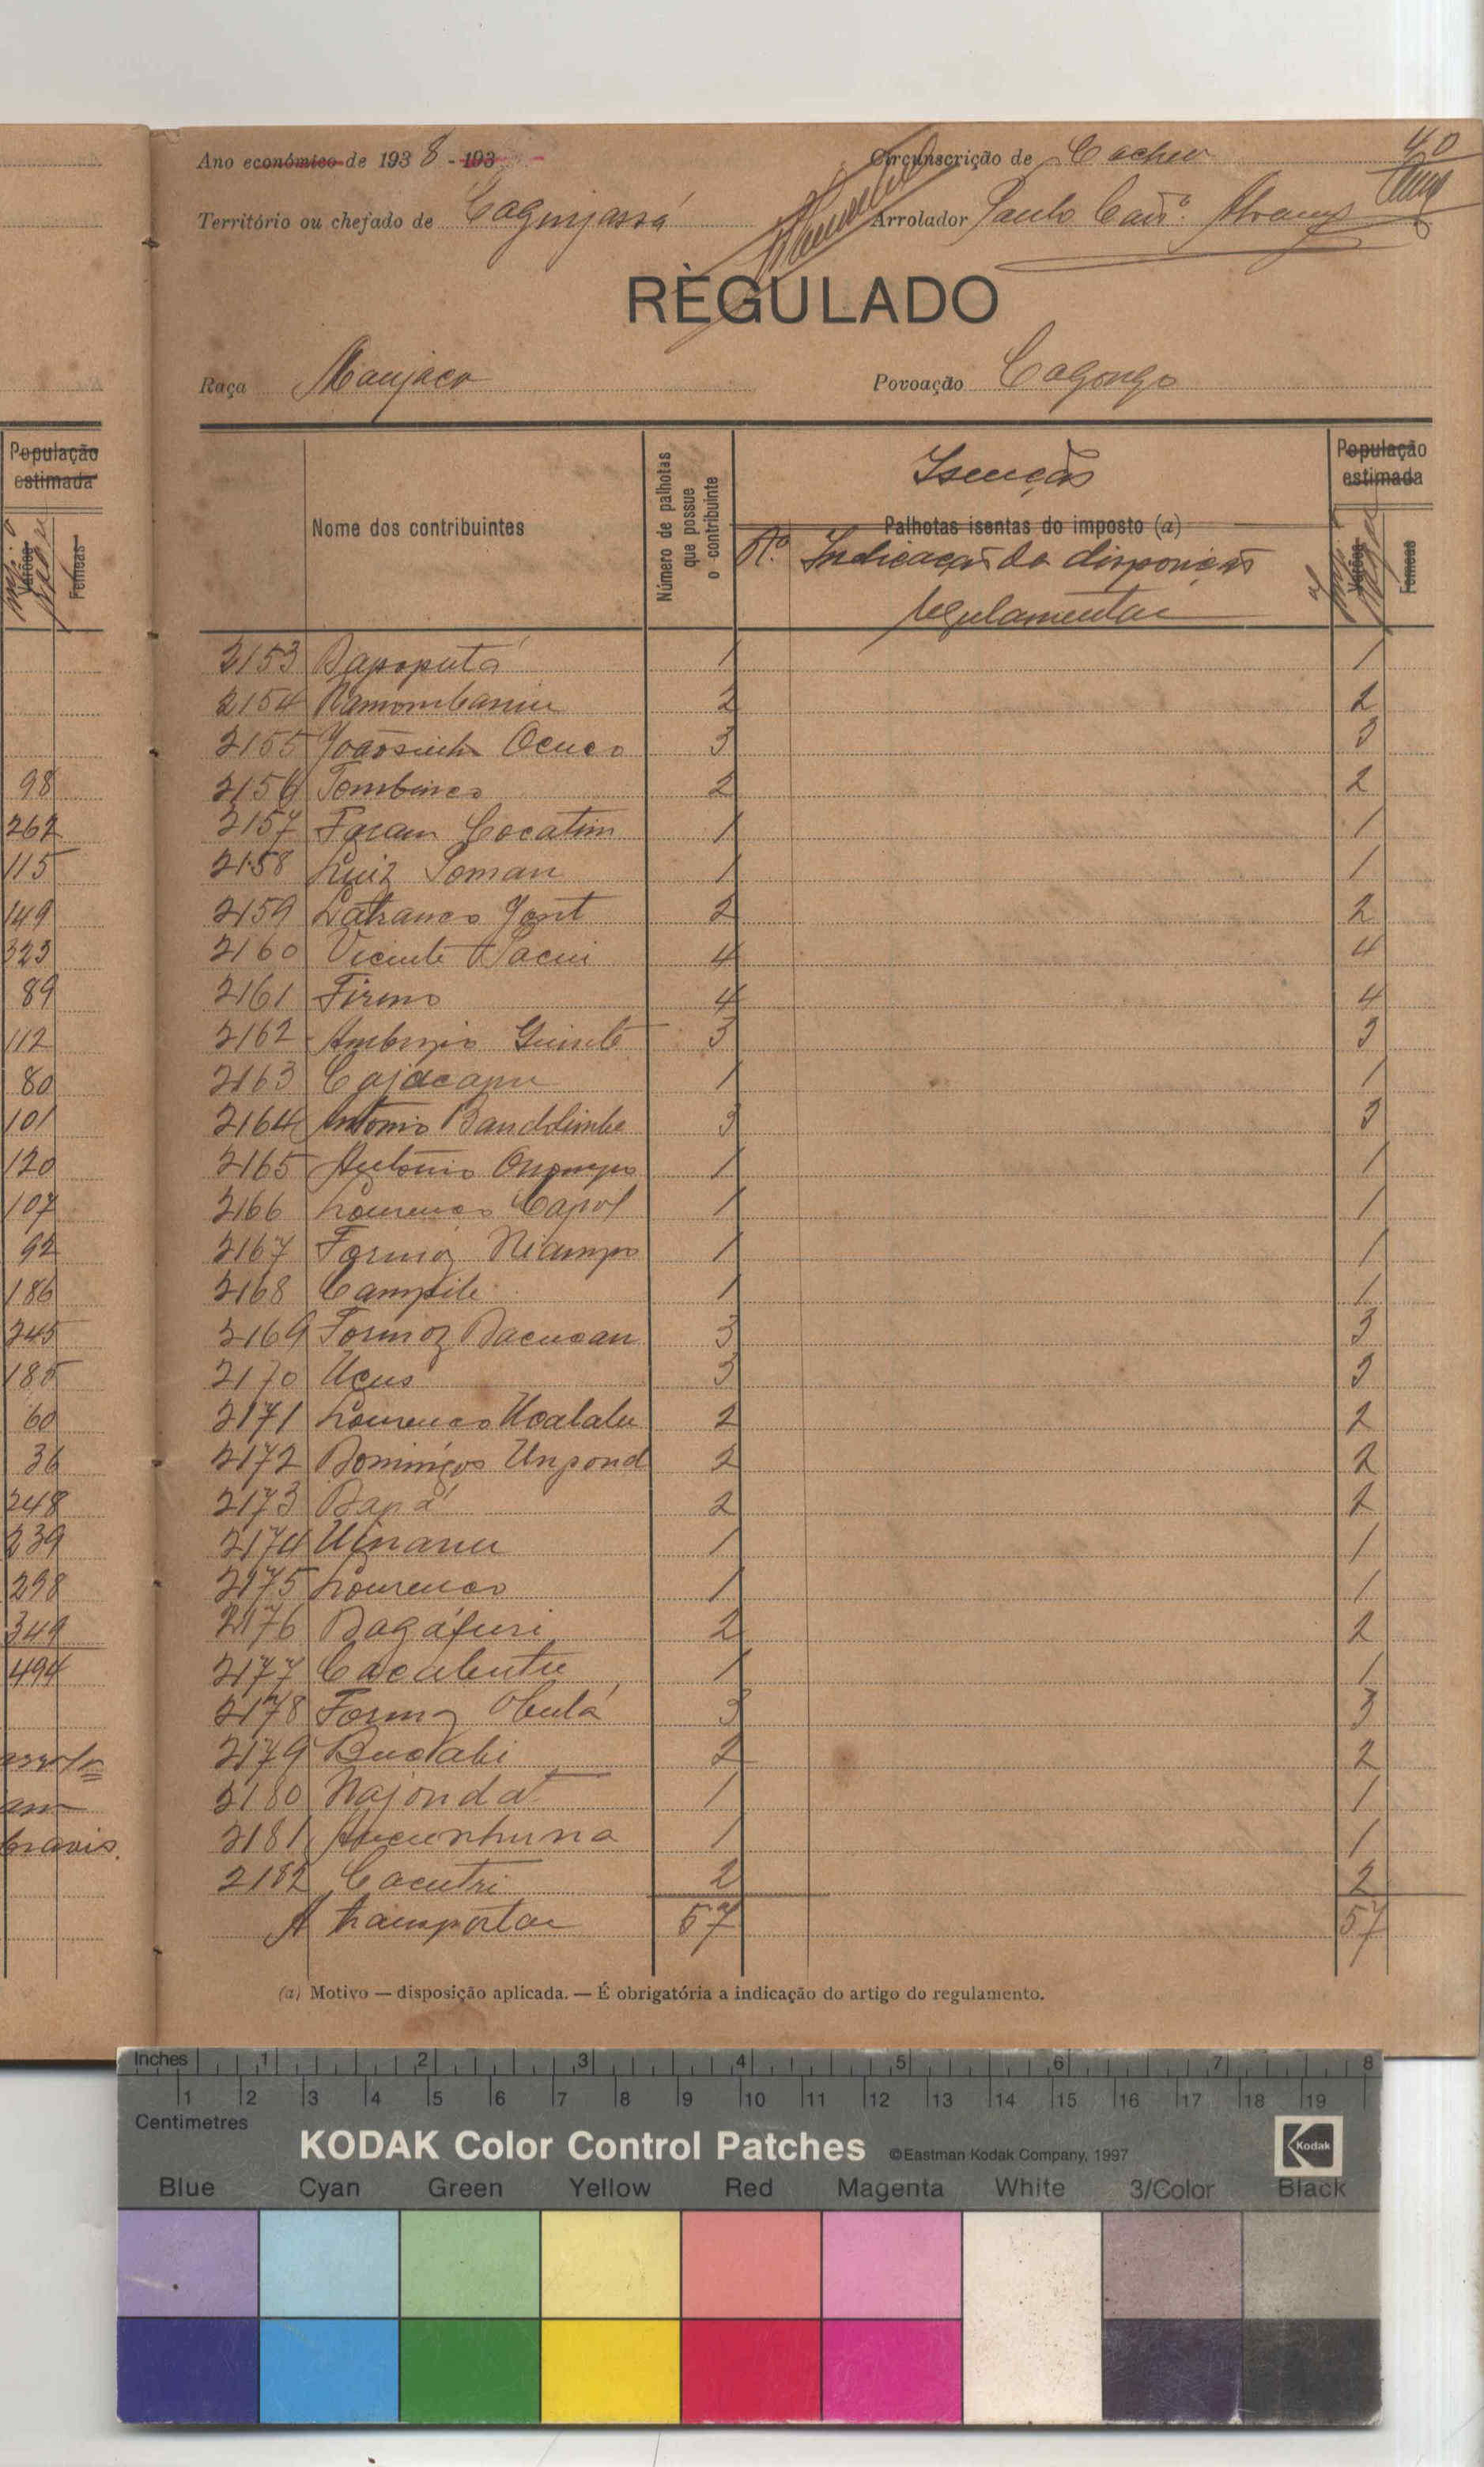 Ano económico de 1938 - 193
Circunscrição de Cacheu
40
Território ou chefado de Caginjassá
Arrolador Paulo
RÈGULADO
Raça Manjaca
Povoação Cagongo
População estimada
Varões
Femeas
Nome dos contribuintes
Número de palhotas que possue o contribuinte
Isenção
Palhotas isentas do imposto (a)
N.º Indicação da disposição
regulamentar
População estimada
Varões
Femeas
2153 Daposputá 1 1
2154 2 2
2155 Joãosinho Ocuco 3 3
2156 2 2
2157 Facam Cocatim 1 1
2158 Luiz Soman 1 1
2159 2 2
2160 Vicente 4 4
2161 Firmo 4 4
2162 Ambrosio 3 3
2163 Cajacapu 1 1
2164 Antonio 3 3
2165 António 1 1
2166 Lourenço Capol 1 1
2167 Formoz Niampo 1 1
2168 Campili 1 1
2169 Formoz Dacucan 3 3
2170 Uçus 3 3
2171 Lourenço Ucalalu 2 2
2172 Domingos Unpond 2 2
2173 Dapá 2 2
2174 Uinanu 1 1
2175 Lourenço 1 1
2176 Dagáfuri 2 2
2177 Cacabutu 1 1
2178 Formoz 3 3
2179 2 2
2180 Najondat 1 1
2181 1 1
2182 Cacutri 2 2
A transportar 57 57
(a) Motivo — disposição aplicada. — É obrigatória a indicação do artigo do regulamento.
98
262
115
149
323
89
112
80
101
120
107
92
186
245
185
60
36
248
239
298
349
494
Inches 1 2 3 4 5 6 7 8
1 2 3 4 5 6 7 8 9 10 11 12 13 14 15 16 17 18 19
Centimetres
KODAK Color Control Patches ©Eastman Kodak Company, 1997
Kodak
Blue Cyan Green Yellow Red Magenta White 3/Color Black